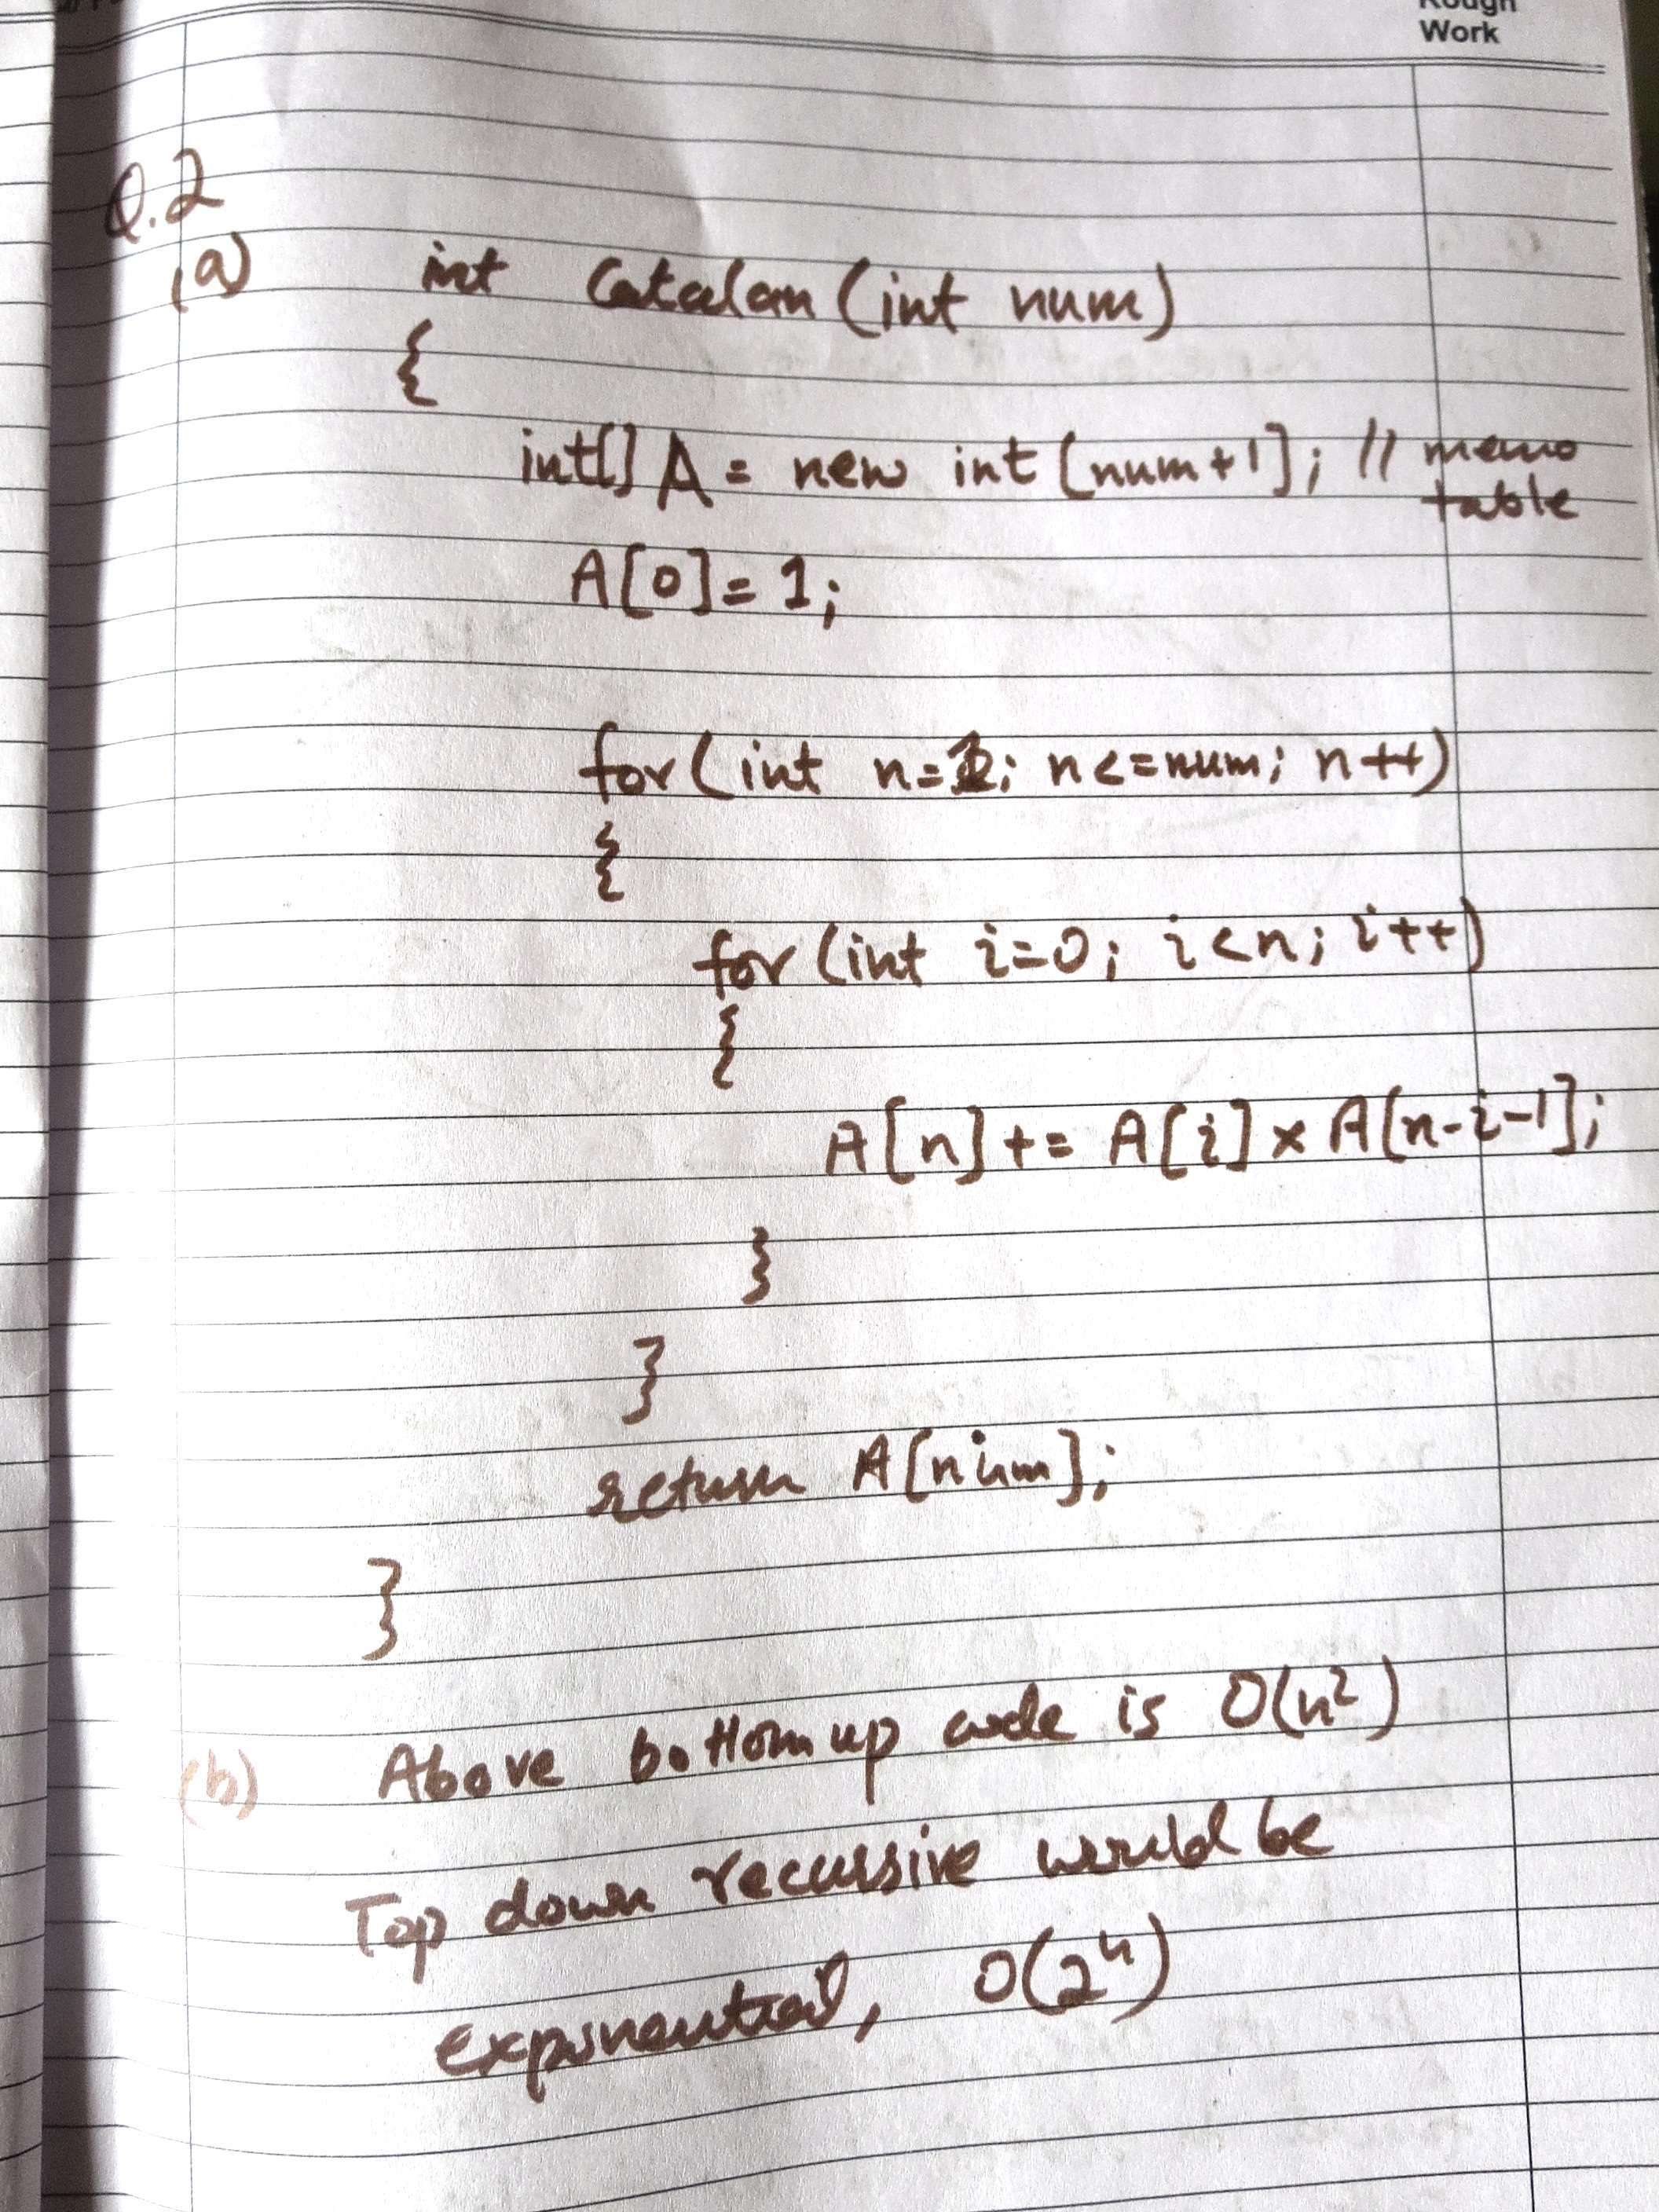 Rough
Work
Q.2
(a) int Catalan (int num)
{
int[] A = new int [num+1]; // memo
table
A[0]= 1;
for (int n=1; n<=num; n++)
{
for (int i=0; i<n; i++)
{
A[n] += A[i] x A[n-i-1];
}
}
return A[num];
}
(b) Above bottom up code is O(n²)
Top down recursive would be
exponential, O(2ⁿ)